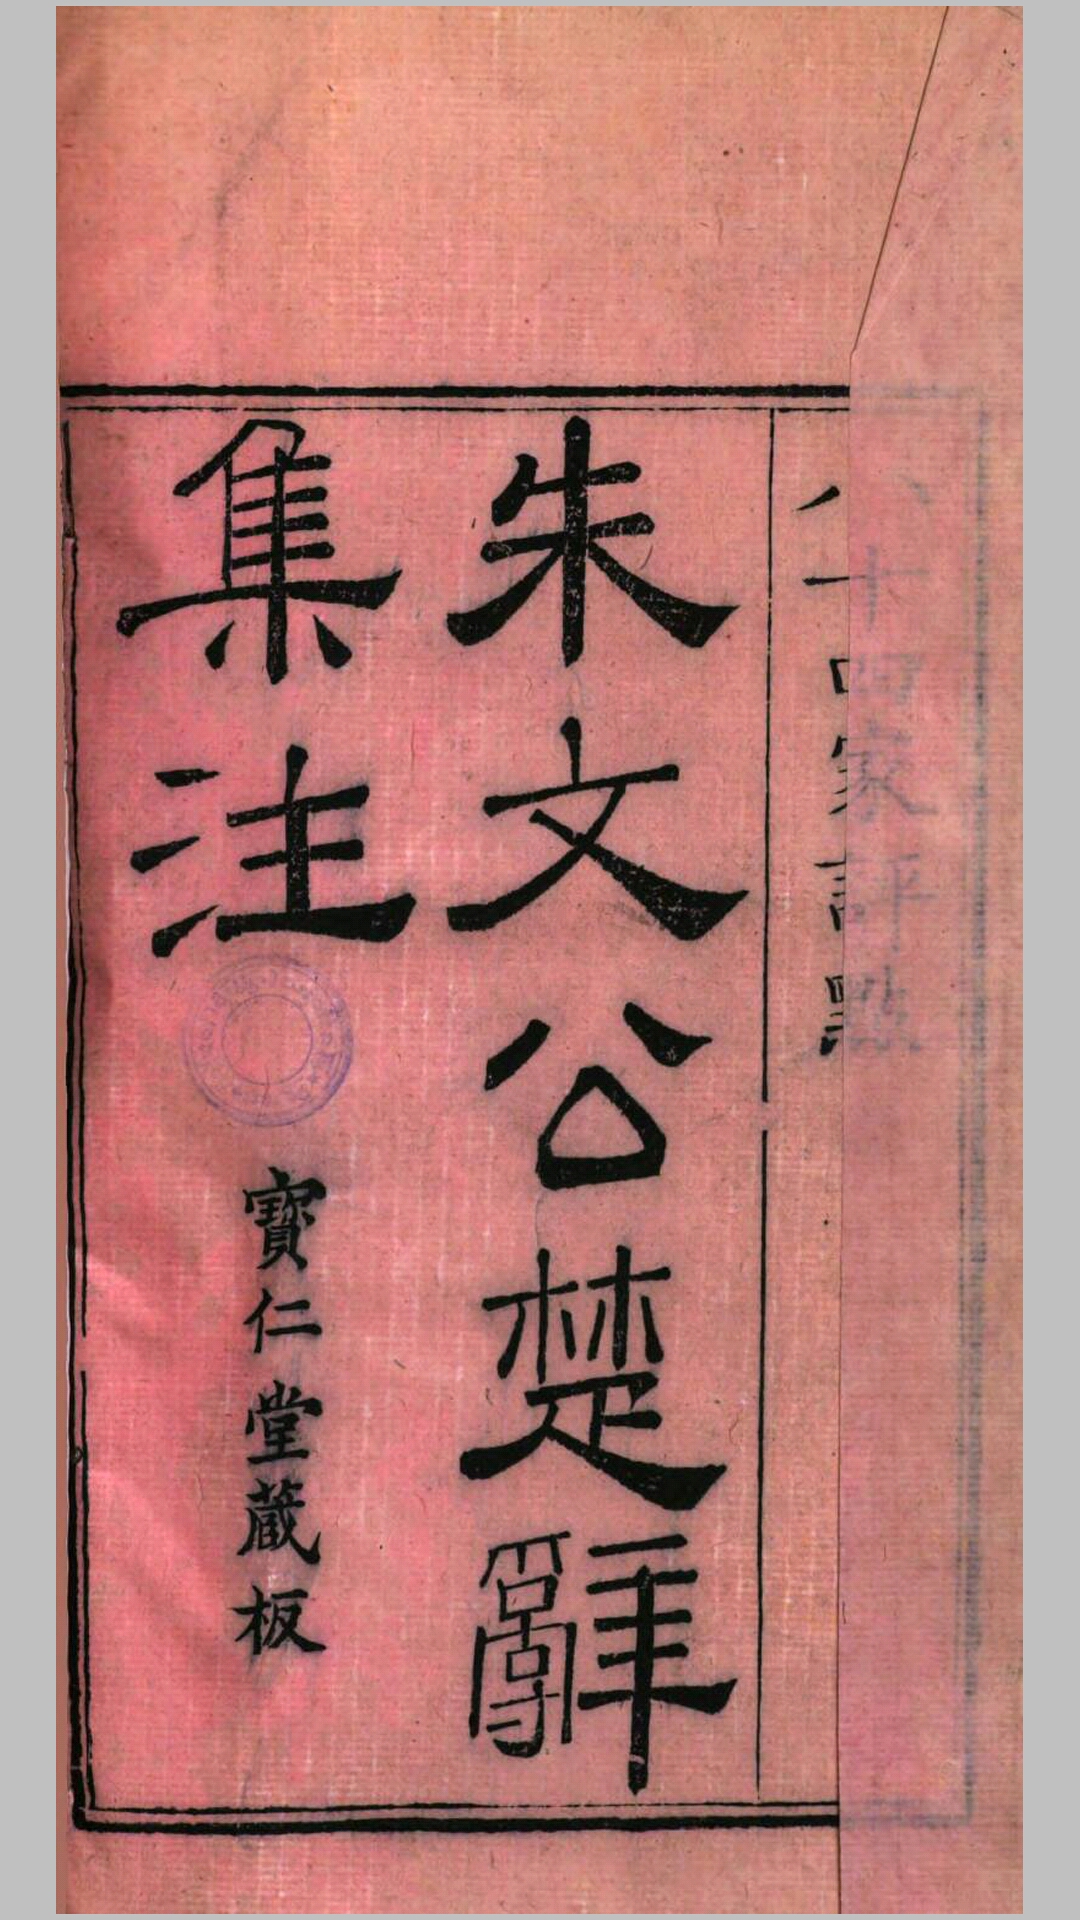 八十四家評點
朱文公楚辭
集注
寶仁堂蔵板